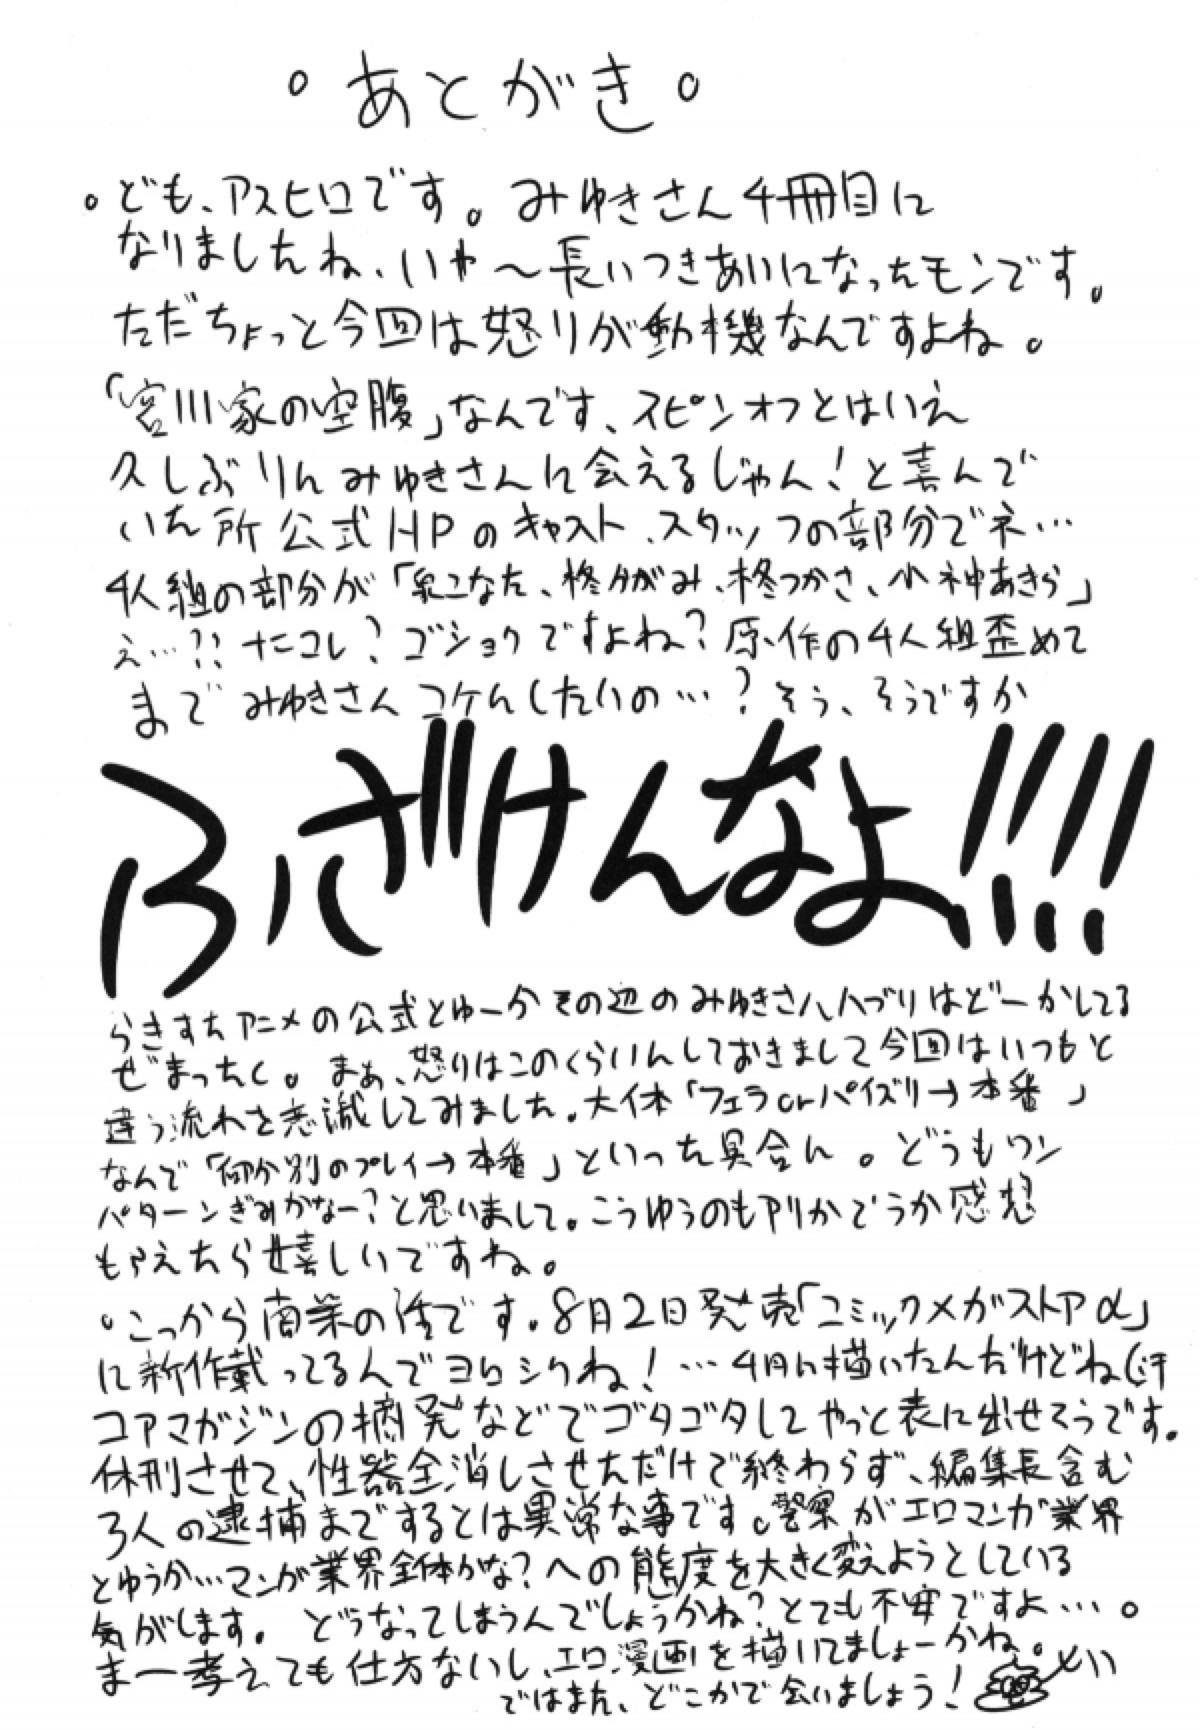 。あとがき。
。ども、アスヒロです。みゆきさん4冊目に
なりましたね、いや〜長いつきあいになったモンです。
ただちょっと今回は怒りが動機なんですよね。
「宮川家の空腹」なんです、スピンオフとはいえ
久しぶりにみゆきさんに会えるじゃん!と喜んで
いた所公式HPのキャスト、スタッフの部分でネ…
4人組の部分が「泉こなた、柊かがみ、柊つかさ、小神あきら」
え…??ナニコレ?ゴショクですよね?原作の4人組歪めて
までみゆきさんコケにしたいの…?そう、そうですか
ふざけんなよ!!!!
らきすたアニメの公式とゆーかその辺のみゆきさんハブリはどーかしてる
ぜまったく。まぁ、怒りはこのくらいにしておきまして今回はいつもと
違う流れを意識してみました。大体「フェラorパイズリ→本番」
なんで「何か別のプレイ→本番」といった具合に。どうもワン
パターンぎみかなー?と思いまして。こうゆうのもアリかどうか感想
もらえたら嬉しいですね。
・こっから商業の話です。8月2日発売「コミックメガストアα」
に新作載ってるんでヨロシクね!…4月に描いたんだけどね(汗
コアマガジンの摘発などでゴタゴタしてやっと表に出せそうです。
休刊させて、性器全消しさせただけで終わらず、編集長含む
3人の逮捕までするとは異常な事です。警察がエロマンガ業界
とゆうか…マンガ業界全体かな?への態度を大きく変えようとしている
気がします。どうなってしまうんでしょうかね?とても不安ですよ…。
まー考えても仕方ないし、エロ漫画を描いてましょーかね。
ではまた、どこかで会いましょう!